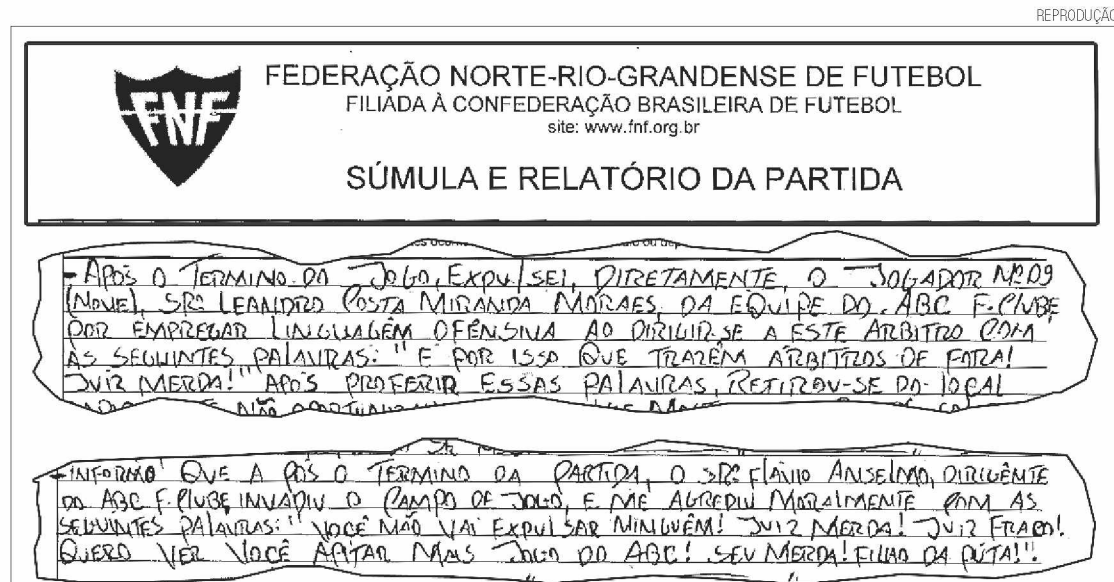 REPRODUÇÃO
FNF
FEDERAÇÃO NORTE-RIO-GRANDENSE DE FUTEBOL
FILIADA À CONFEDERAÇÃO BRASILEIRA DE FUTEBOL
site: www.fnf.org.br
SÚMULA E RELATÓRIO DA PARTIDA
- APÓS O TERMINO DO JOGO, EXPULSEI, DIRETAMENTE, O JOGADOR Nº 09
(NOVE), SRº LEANDRO COSTA MIRANDA MORAES, DA EQUIPE DO ABC F. CLUBE
POR EMPREGAR LINGUAGÊM OFENSIVA AO DIRIGIR-SE A ESTE ARBITRO COM
AS SEGUINTES PALAVRAS: "É POR ISSO QUE TRAZÊM ARBITROS DE FORA!
JUIZ MERDA!" APÓS PROFERIR ESSAS PALAVRAS, RETIROU-SE DO LOCAL
NÃO
- INFORMO QUE A PÓS O TERMINO DA PARTIDA, O SRº FLÁVIO ANSELMO, DIRIGÊNTE
DO ABC F. CLUBE INVADIU O CAMPO DE JOGO, E ME AGREDIU MORALMENTE COM AS
SEGUINTES PALAVRAS: "VOCÊ NÃO VAI EXPULSAR NINGUÉM! JUIZ MERDA! JUIZ FRACO!
QUERO VER VOCÊ APITAR MAIS JOGO DO ABC! SEU MERDA! FILHO DA PÚTA!"